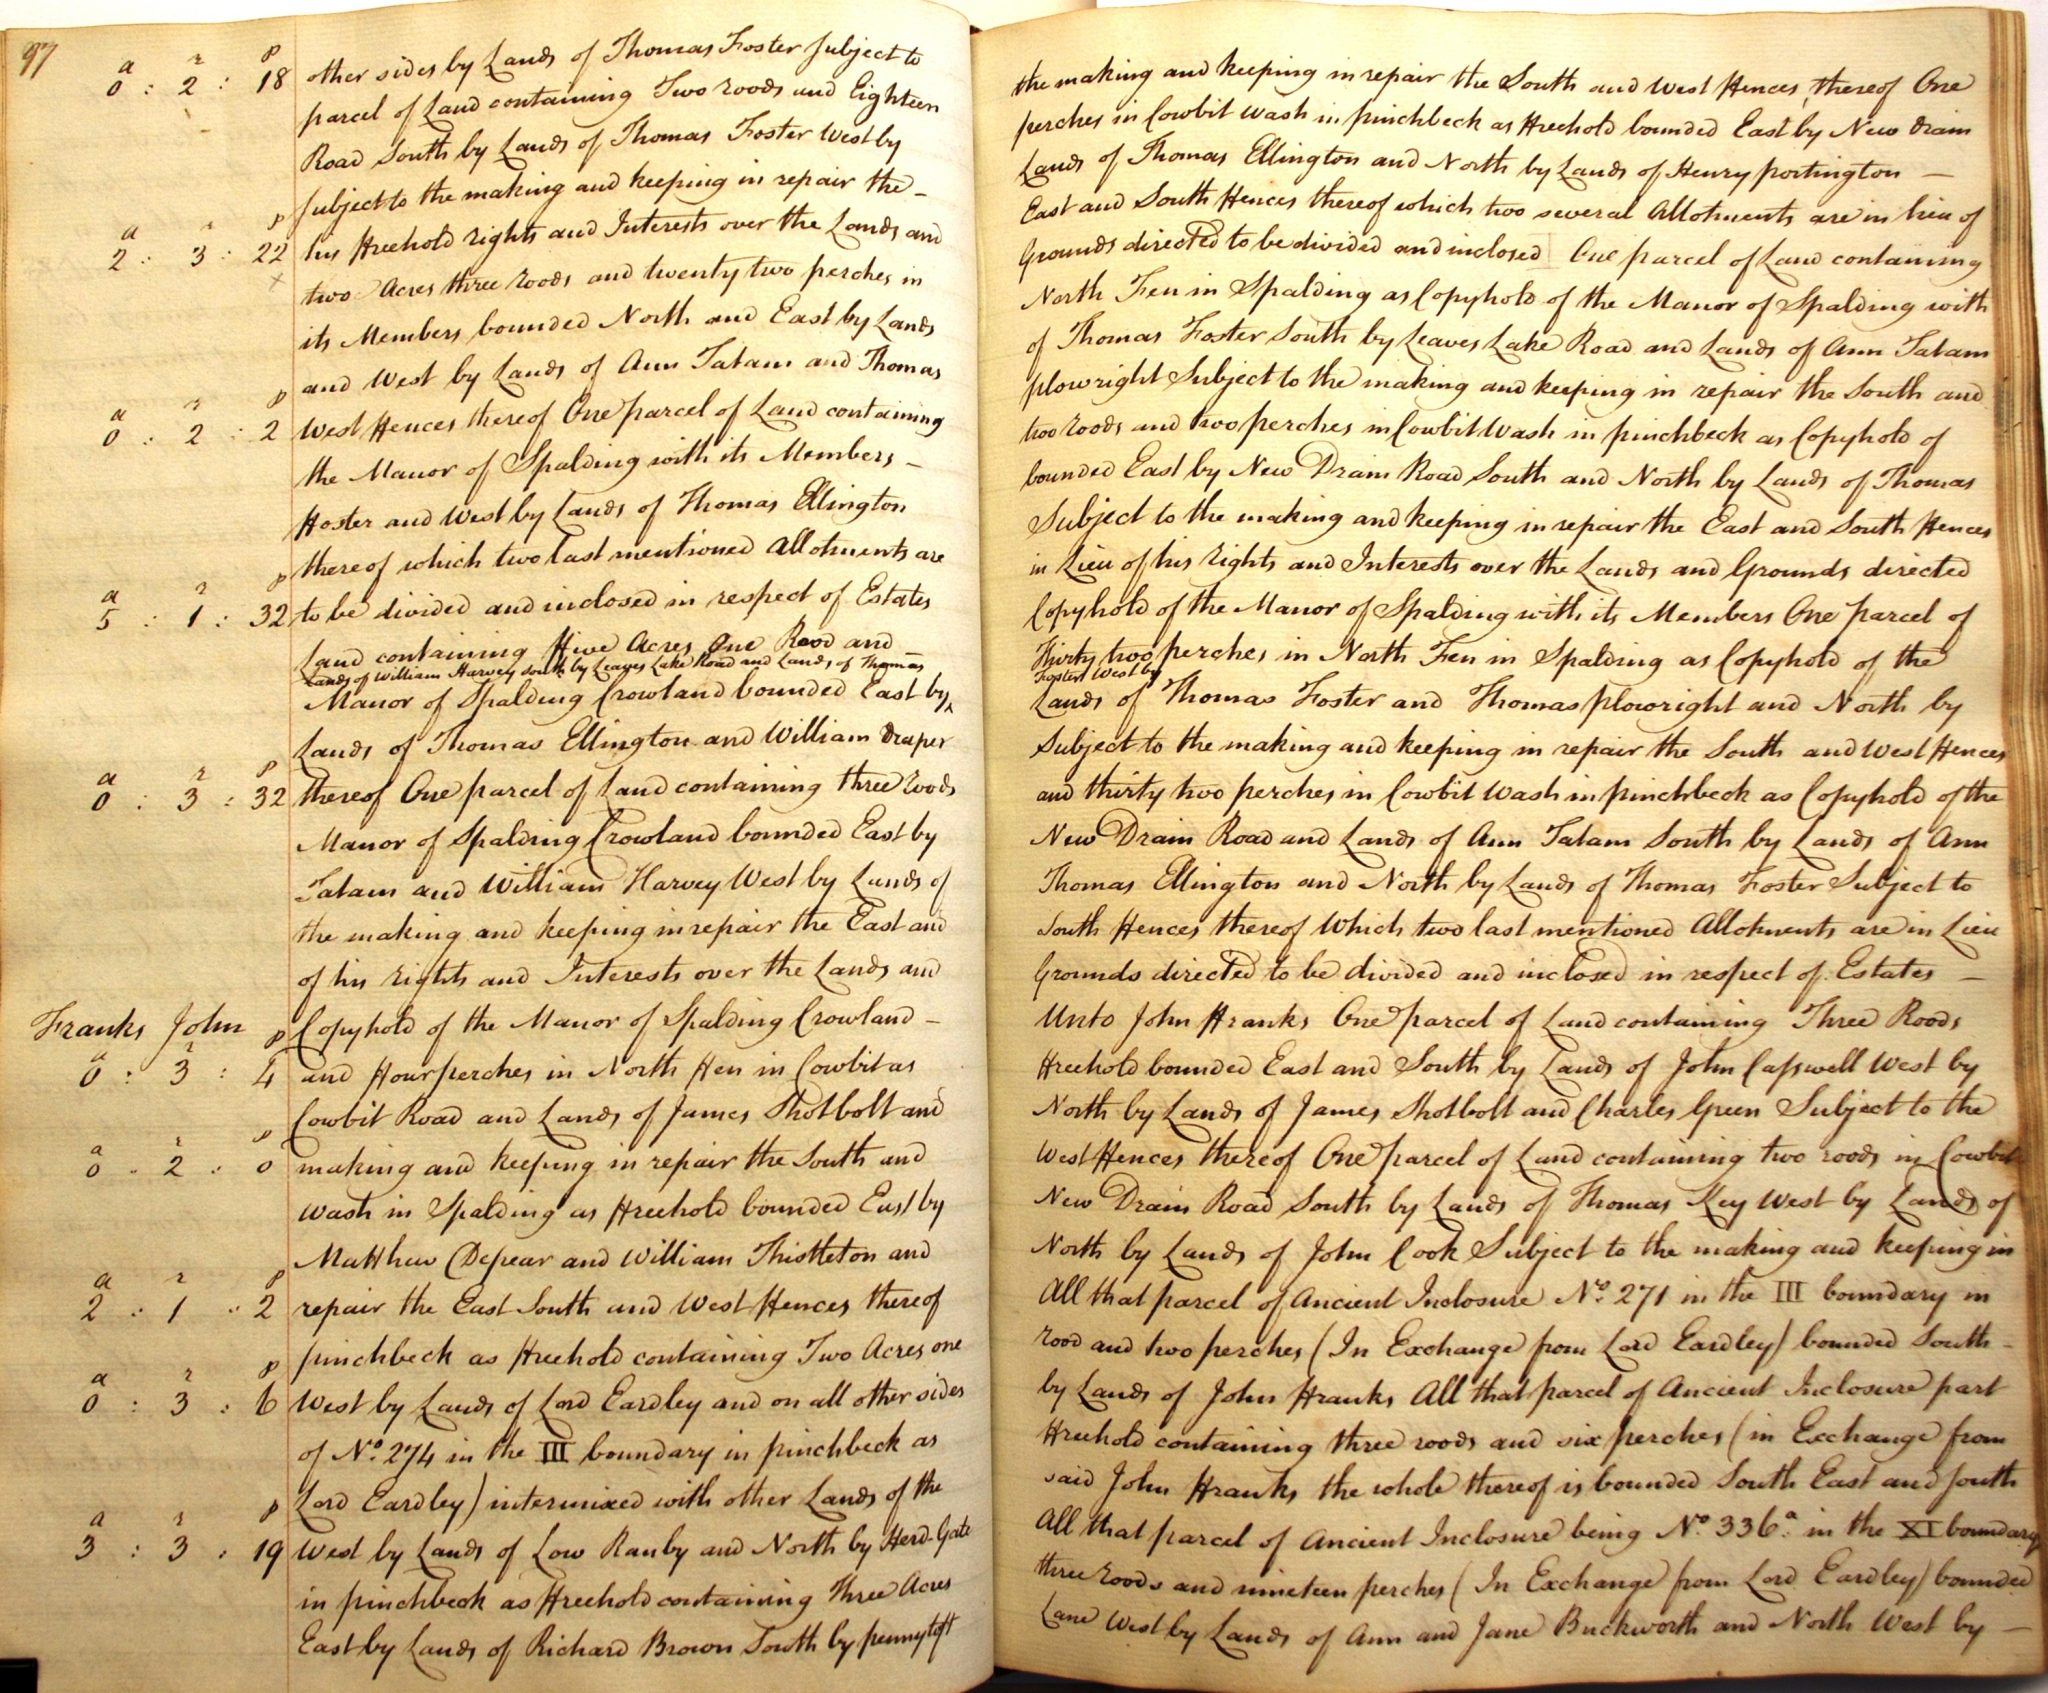 97
a r p
0 : 2 : 18 other sides by Lands of Thomas Foster subject to the making and keeping in repair the South and West Fences thereof One
parcel of Land containing Two roods and Eighteen perches in Cowbit Wash in pinchbeck as Freehold bounded East by New Drain
Road South by Lands of Thomas Foster West by Lands of Thomas Ellington and North by Lands of Henry portington —
subject to the making and keeping in repair the — East and South Fences thereof which two several Allotments are in lieu of
a r p
2 : 3 : 22 his Freehold rights and Interests over the Lands and Grounds directed to be divided and inclosed One parcel of Land containing
two Acres three roods and twenty two perches in North Fen in Spalding as Copyhold of the Manor of Spalding with
its Members bounded North and East by Lands of Thomas Foster South by Leaves Lake Road and Lands of Ann Tatam
and West by Lands of Ann Tatam and Thomas plowright Subject to the making and keeping in repair the South and
a r p
0 : 2 : 2 West Fences thereof One parcel of Land containing two roods and two perches in Cowbit Wash in pinchbeck as Copyhold of
the Manor of Spalding with its Members — bounded East by New Drain Road South and North by Lands of Thomas
Foster and West by Lands of Thomas Ellington Subject to the making and keeping in repair the East and South Fences
thereof which two last mentioned Allotments are in Lieu of his rights and Interests over the Lands and Grounds directed
a r p
5 : 1 : 32 to be divided and inclosed in respect of Estates Copyhold of the Manor of Spalding with its Members One parcel of
Land containing Five Acres One Rood and Thirty two perches in North Fen in Spalding as Copyhold of the
Lands of William Harvey South by Leaves Lake Road and Lands of Thomas Foster West by
Manor of Spalding Crowland bounded East by Lands of Thomas Foster and Thomas plowright and North by
Lands of Thomas Ellington and William Draper Subject to the making and keeping in repair the South and West Fences
a r p
0 : 3 : 32 thereof One parcel of Land containing three roods and thirty two perches in Cowbit Wash in pinchbeck as Copyhold of the
Manor of Spalding Crowland bounded East by New Drain Road and Lands of Ann Tatam South by Lands of Ann
Tatam and William Harvey West by Lands of Thomas Ellington and North by Lands of Thomas Foster Subject to
the making and keeping in repair the East and South Fences thereof Which two last mentioned Allotments are in Lieu
of his rights and Interests over the Lands and Grounds directed to be divided and inclosed in respect of Estates —
Franks John Copyhold of the Manor of Spalding Crowland — Unto John Franks One parcel of Land containing Three Roods
a r p
0 : 3 : 4 and Four perches in North Fen in Cowbit as Freehold bounded East and South by Lands of John Capswell West by
Cowbit Road and Lands of James Shotbolt and North by Lands of James Shotbolt and Charles Green Subject to the
a r p
0 : 2 : 0 making and keeping in repair the South and West Fences thereof One parcel of Land containing two roods in Cowbit
Wash in Spalding as Freehold bounded East by New Drain Road South by Lands of Thomas Key West by Lands of
Matthew Depear and William Thistleton and North by Lands of John Cook Subject to the making and keeping in
a r p
2 : 1 : 2 repair the East South and West Fences thereof All that parcel of Ancient Inclosure No. 271 in the III boundary in
pinchbeck as Freehold containing Two Acres one rood and two perches (In Exchange from Lord Eardley) bounded South —
a r p
0 : 3 : 6 West by Lands of Lord Eardley and on all other sides by Lands of John Franks All that parcel of Ancient Inclosure part
of No. 274 in the III boundary in pinchbeck as Freehold containing three roods and six perches (in Exchange from
Lord Eardley) intermixed with other Lands of the said John Franks the whole thereof is bounded South East and South
a r p
3 : 3 : 19 West by Lands of Low Ranby and North by Herd-Gate All that parcel of Ancient Inclosure being No. 336a. in the XI boundary
in pinchbeck as Freehold containing Three Acres three roods and nineteen perches (In Exchange from Lord Eardley) bounded
East by Lands of Richard Brown South by pennytoft Lane West by Lands of Ann and Jane Buckworth and North West by —